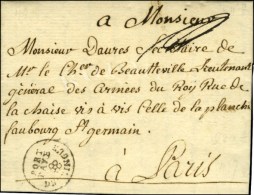 a Monsieur
Monsieur Daures Secretaire de
Mr le Cher de Beautteville Lieutenant
général des Armées du Roy Rue de
la chaise vis à vis Celle de la planche
faubourg St germain
à Paris
PORT PAYÉ